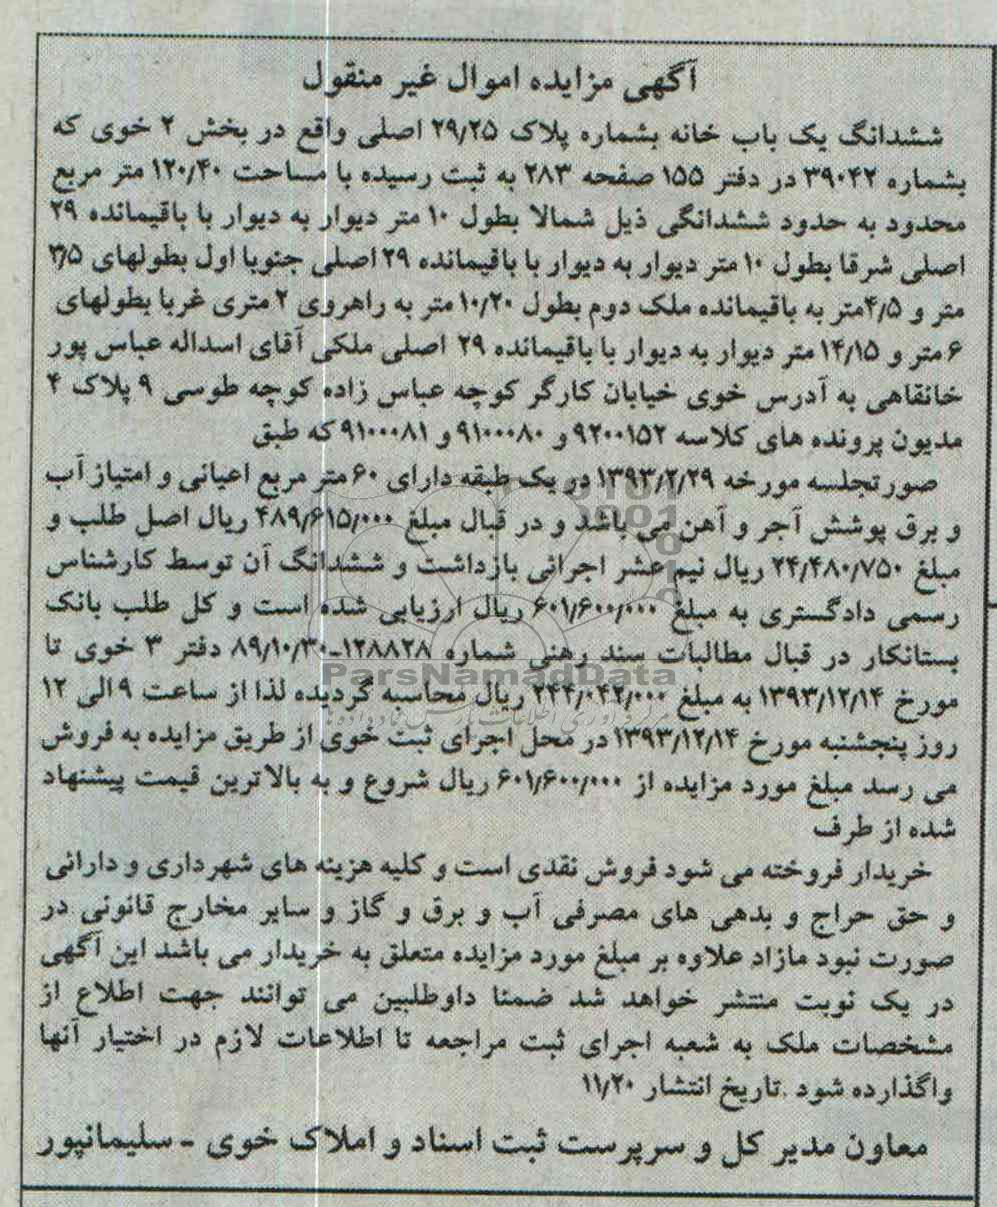 آگهی مزایده اموال غیر منقول
ششدانگ یک باب خانه بشماره پلاک ۲۹/۲۵ اصلی واقع در بخش ۲ خوی که
بشماره ۳۹۰۴۲ در دفتر ۱۵۵ صفحه ۲۸۳ به ثبت رسیده با مساحت ۱۲۰/۴۰ متر مربع
محدود به حدود ششدانگی ذیل شمالا بطول ۱۰ متر دیوار به دیوار با باقیمانده ۲۹
اصلی شرقا بطول ۱۰ متر دیوار به دیوار با باقیمانده ۲۹ اصلی جنوبا اول بطولهای ۳/۵
متر و ۴/۵متر به باقیمانده ملک دوم بطول ۱۰/۲۰متر به راهروی ۲ متری غربا بطولهای
۶ متر و ۱۴/۱۵ متر دیوار به دیوار با باقیمانده ۲۹ اصلی ملکی آقای اسداله عباس پور
خانقاهی به آدرس خوی خیابان کارگر کوچه عباس زاده کوچه طوسی ۹ پلاک ۴
مدیون پرونده های کلاسه ۹۲۰۰۱۵۲ و ۹۱۰۰۰۸۰ و ۹۱۰۰۰۸۱ که طبق
صورتجلسه مورخه ۱۳۹۳/۲/۲۹ در یک طبقه دارای ۶۰ متر مربع اعیانی و امتیاز آب
و برق پوشش آجر و آهن می باشد و در قبال مبلغ ۴۸۹/۶۱۵/۰۰۰ ریال اصل طلب و
مبلغ ۲۴/۴۸۰/۷۵۰ ریال نیم عشر اجرائی بازداشت و ششدانگ آن توسط کارشناس
رسمی دادگستری به مبلغ ۶۰۱/۶۰۰/۰۰۰ ریال ارزیابی شده است و کل طلب بانک
بستانکار در قبال مطالبات سند رهنی شماره ۱۲۸۸۲۸-۸۹/۱۰/۳۰ دفتر ۳ خوی تا
مورخ ۱۳۹۳/۱۲/۱۴ به مبلغ ۲۴۴/۰۴۲/۰۰۰ ریال محاسبه گردیده لذا از ساعت ۹ الی ۱۲
روز پنجشنبه مورخ ۱۳۹۳/۱۲/۱۴ در محل اجرای ثبت خوی از طریق مزایده به فروش
می رسد مبلغ مورد مزایده از ۶۰۱/۶۰۰/۰۰۰ ریال شروع و به بالاترین قیمت پیشنهاد
شده از طرف
خریدار فروخته می شود فروش نقدی است و کلیه هزینه های شهرداری و دارائی
و حق حراج و بدهی های مصرفی آب و برق و گاز و سایر مخارج قانونی در
صورت نبود مازاد علاوه بر مبلغ مورد مزایده متعلق به خریدار می باشد این آگهی
در یک نوبت منتشر خواهد شد ضمنا داوطلبین می توانند جهت اطلاع از
مشخصات ملک به شعبه اجرای ثبت مراجعه تا اطلاعات لازم در اختیار آنها
واگذارده شود .تاریخ انتشار ۱۱/۲۰
معاون مدیر کل و سرپرست ثبت اسناد و املاک خوی - سلیمانپور
ParsNamadData